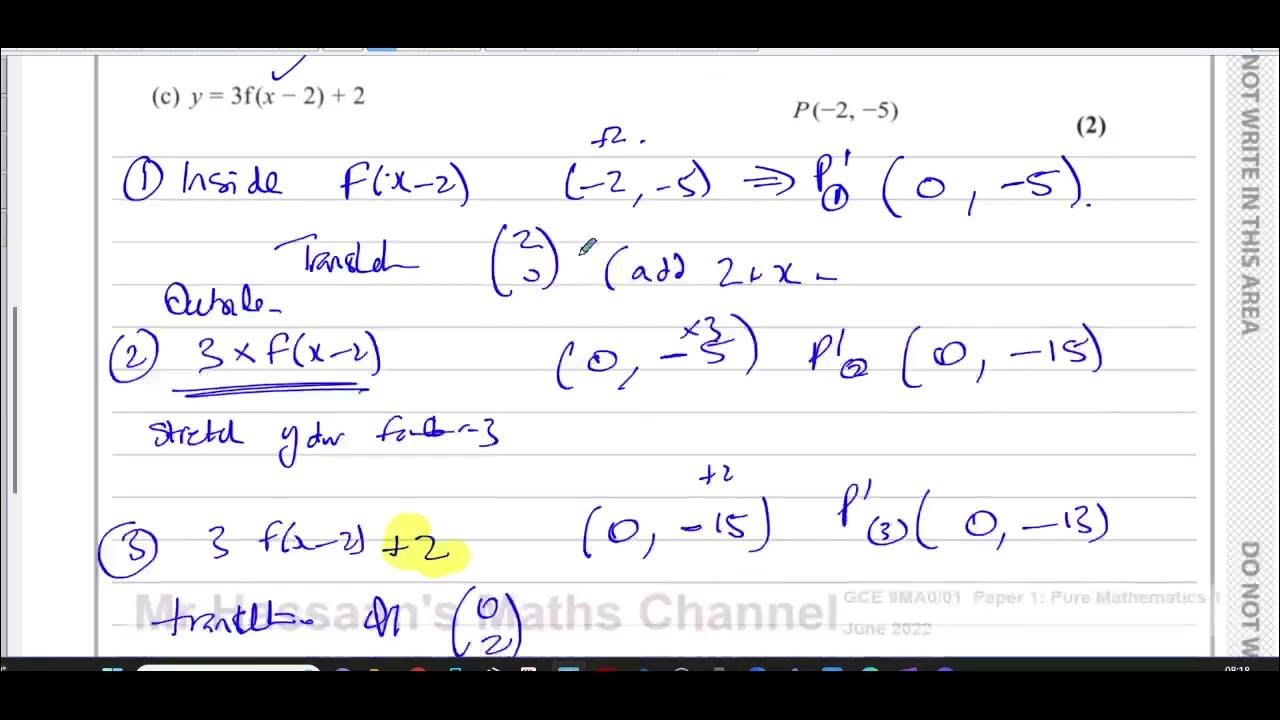 (c) y = 3f(x − 2) + 2
P(−2, −5)
(2)
+2.
① Inside f(x−2) (−2, −5) ⇒ P'① (0, −5).
(2 0) (add 2 + x −
Outside
② 3 × f(x−2) (0, −5) ×3 P'② (0, −15)
stretch y dir factor 3
+2
③ 3 f(x−2) +2 (0, −15) P'(3) (0, −13)
(0 2)
Mr Hossain's Maths Channel
GCE 9MA0/01 Paper 1: Pure Mathematics 1
June 2022
NOT WRITE IN THIS AREA
DO NOT W
08:18